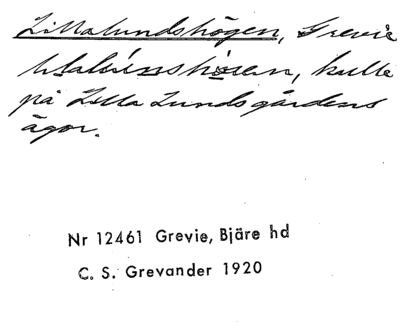 Lillalundshögen, Grevie
kulle
på Lilla Lundsgårdens
ägor.
Nr 12461 Grevie, Bjäre hd
C. S. Grevander 1920